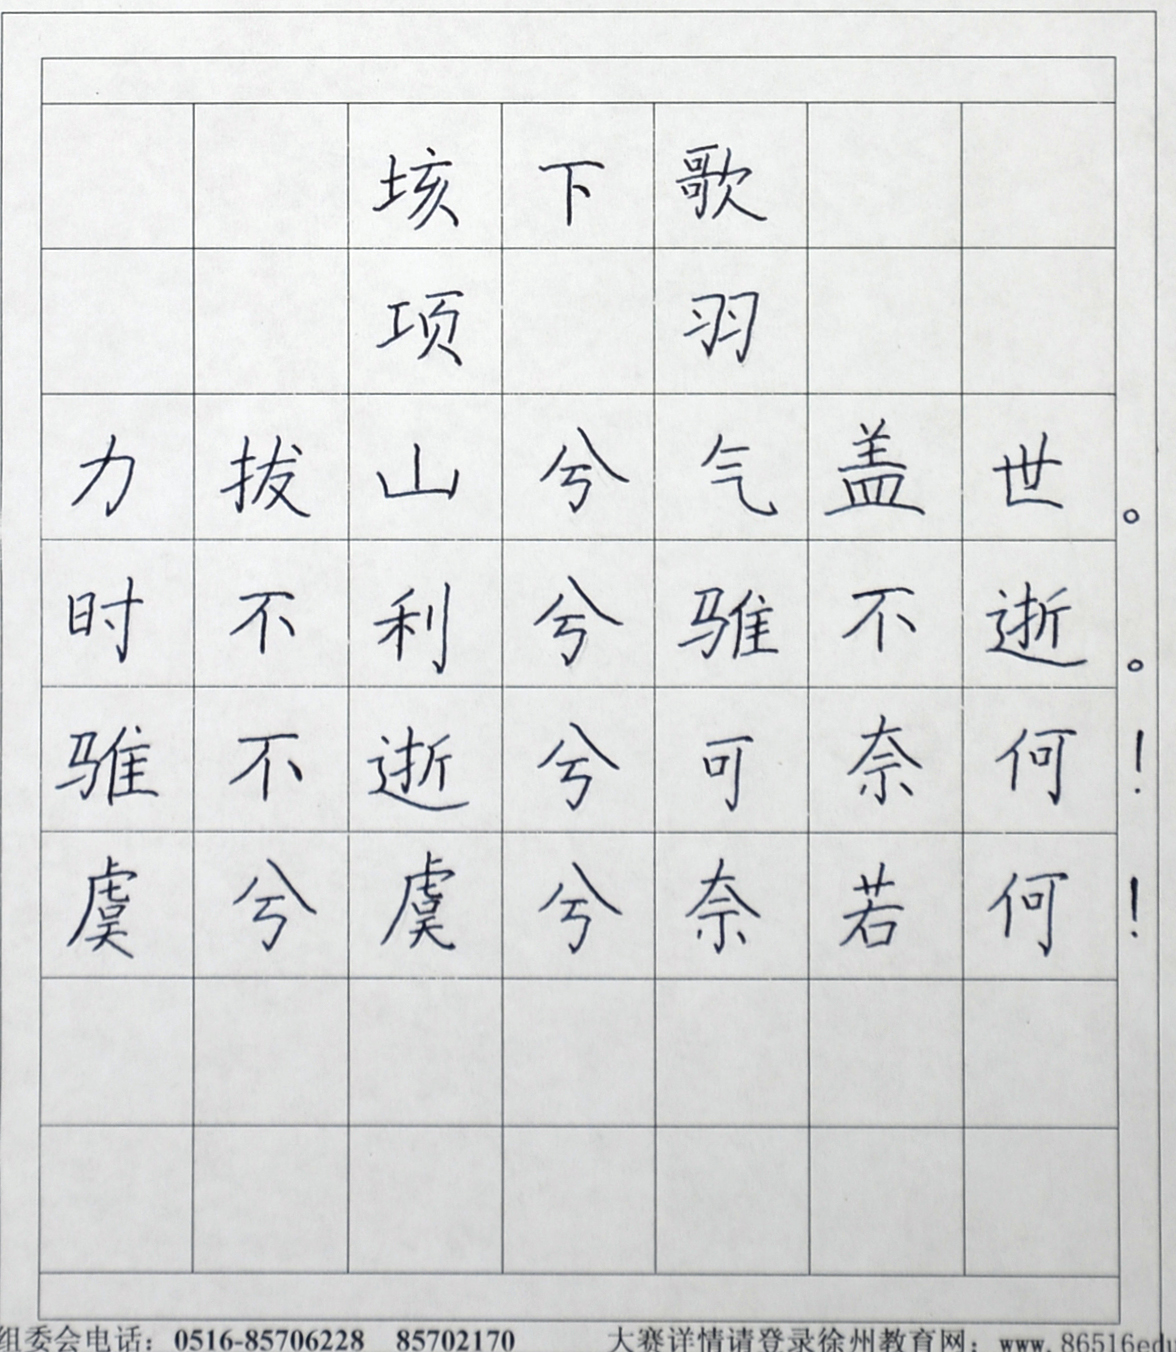 垓下歌
项羽
力拔山兮气盖世。
时不利兮骓不逝。
骓不逝兮可奈何！
虞兮虞兮奈若何！
组委会电话：0516-85706228 85702170 大赛详情请登录徐州教育网：www.86516edu